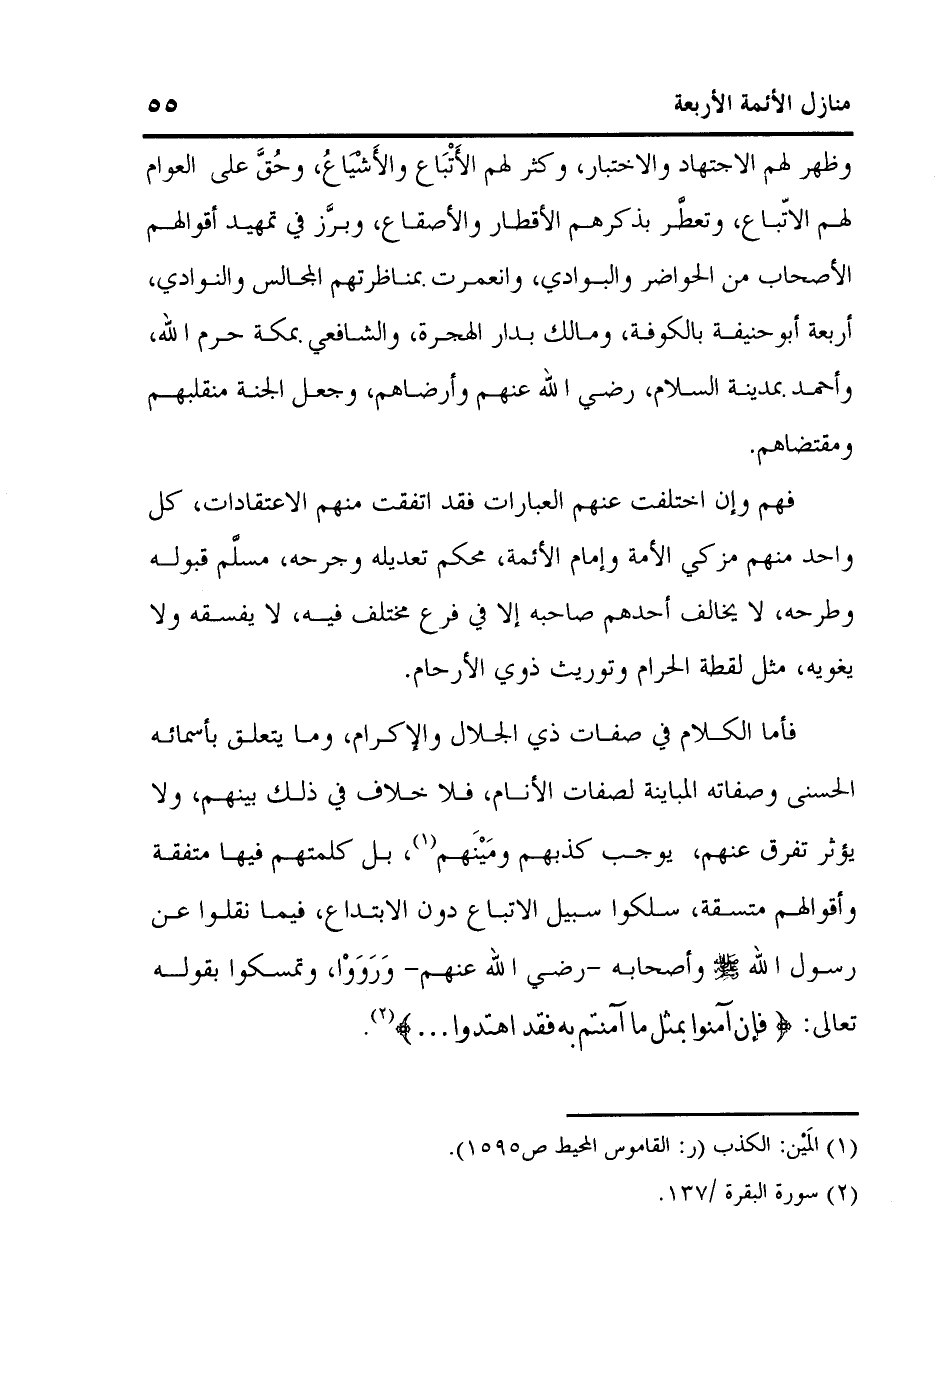 منازل الأئمة الأربعة ٥٥
وظهر لهم الاجتهاد والاختبار، وكثر لهم الأَتْبَاع والأَشْيَاعُ، وحُقَّ على العوام
لهم الاتّباع، وتعطَّر بذكرهم الأقطار والأصقاع، وبرَّز في تمهيد أقوالهم
الأصحاب من الحواضر والبوادي، وانعمرت بمناظرتهم المجالس والنوادي،
أربعة أبو حنيفة بالكوفة، ومالك بدار الهجرة، والشافعي بمكة حرم الله،
وأحمد بمدينة السلام، رضي الله عنهم وأرضاهم، وجعل الجنة منقلبهم
ومقتضاهم.
فهم وإن اختلفت عنهم العبارات فقد اتفقت منهم الاعتقادات، كل
واحد منهم مزكي الأمة وإمام الأئمة، محكم تعديله وجرحه، مسلَّم قبوله
وطرحه، لا يخالف أحدهم صاحبه إلا في فرع مختلف فيه، لا يفسقه ولا
يغويه، مثل لقطة الحرام وتوريث ذوي الأرحام.
فأما الكلام في صفات ذي الجلال والإكرام، وما يتعلق بأسمائه
الحسنى وصفاته المباينة لصفات الأنام، فلا خلاف في ذلك بينهم، ولا
يؤثر تفرق عنهم، يوجب كذبهم ومَيْنَهم(١)، بل كلمتهم فيها متفقة
وأقوالهم متسقة، سلكوا سبيل الاتباع دون الابتداع، فيما نقلوا عن
رسول الله ﷺ وأصحابه -رضي الله عنهم- وَرَوَوْا، وتمسكوا بقوله
تعالى: ﴿ فإن آمنوا بمثل ما آمنتم به فقد اهتدوا ... ﴾(٢).
(١) المَيْن: الكذب (ر: القاموس المحيط ص١٥٩٥).
(٢) سورة البقرة /١٣٧.